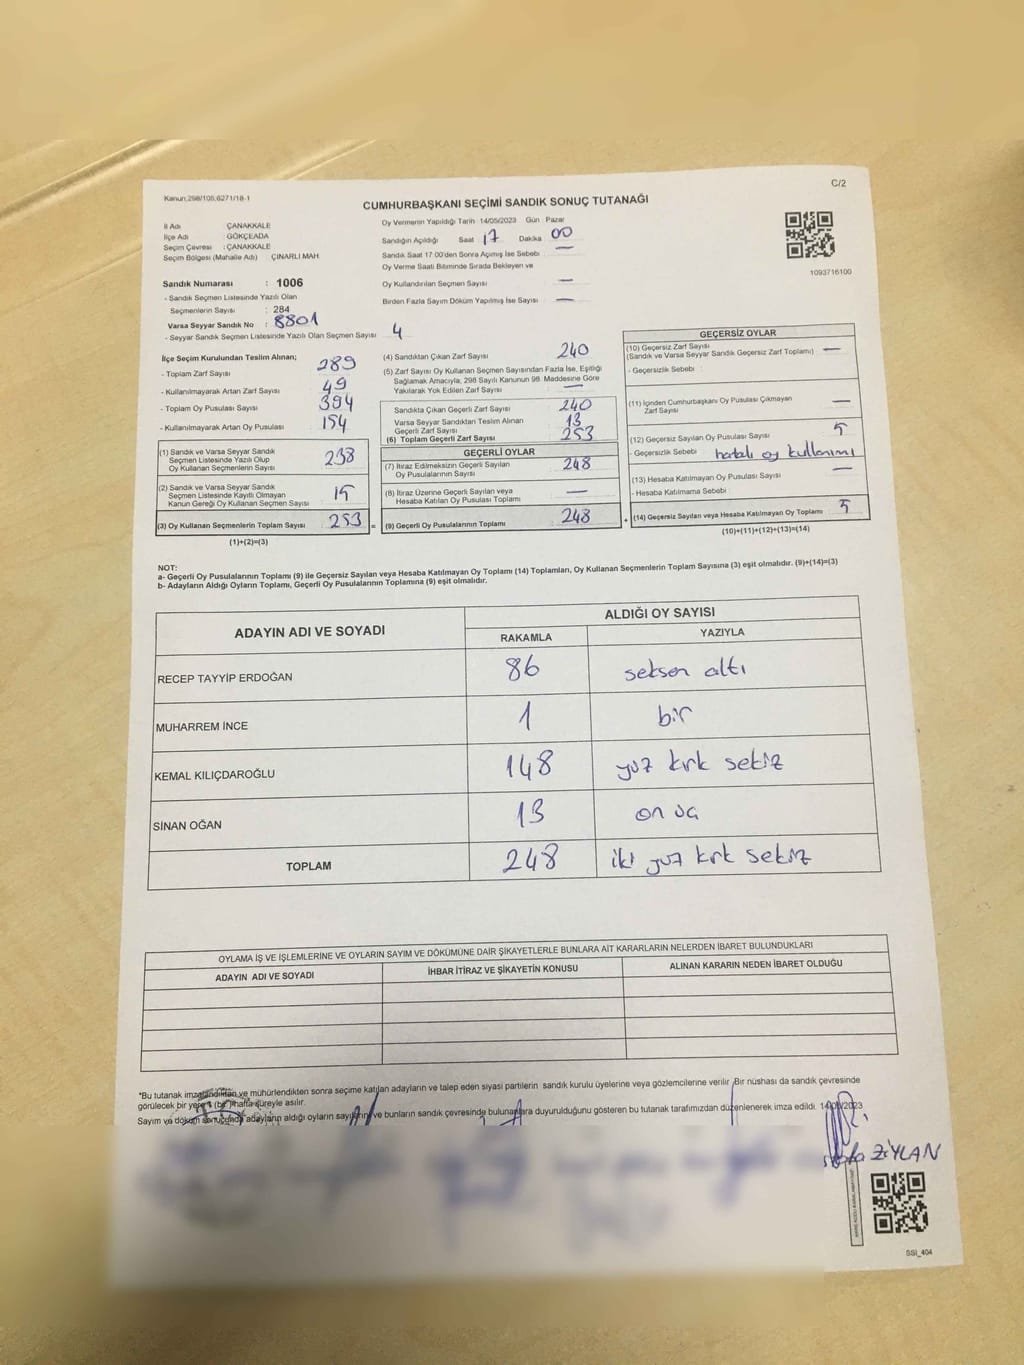 Kanun;298/105;6271/18-1
C/2
CUMHURBAŞKANI SEÇİMİ SANDIK SONUÇ TUTANAĞI
İl Adı ÇANAKKALE
İlçe Adı GÖKÇEADA
Seçim Çevresi : ÇANAKKALE
Seçim Bölgesi (Mahalle Adı) ÇINARLI MAH.
Oy Vermenin Yapıldığı Tarih 14/05/2023 Gün Pazar
Sandığın Açıldığı Saat 17 Dakika 00
Sandık Saat 17 00'den Sonra Açımış İse Sebebi —
Oy Verme Saati Bitiminde Sırada Bekleyen ve
Oy Kullandırılan Seçmen Sayısı —
Birden Fazla Sayım Döküm Yapılmış İse Sayısı —
1093716100
Sandık Numarası : 1006
- Sandık Seçmen Listesinde Yazılı Olan
Seçmenlerin Sayısı : 284
Varsa Seyyar Sandık No : 8801
- Seyyar Sandık Seçmen Listesinde Yazılı Olan Seçmen Sayısı 4
İlçe Seçim Kurulundan Teslim Alınan;
- Toplam Zarf Sayısı 289
- Kullanılmayarak Artan Zarf Sayısı 49
- Toplam Oy Pusulası Sayısı 394
- Kullanılmayarak Artan Oy Pusulası 154
(1) Sandık ve Varsa Seyyar Sandık
Seçmen Listesinde Yazılı Olup
Oy Kullanan Seçmenlerin Sayısı 238
(2) Sandık ve Varsa Seyyar Sandık
Seçmen Listesinde Kayıtlı Olmayan
Kanun Gereği Oy Kullanan Seçmen Sayısı 15
(3) Oy Kullanan Seçmenlerin Toplam Sayısı 253 =
(1)+(2)=(3)
(4) Sandıktan Çıkan Zarf Sayısı 240
(5) Zarf Sayısı Oy Kullanan Seçmen Sayısından Fazla İse, Eşitliği
Sağlamak Amacıyla, 298 Sayılı Kanunun 98. Maddesine Göre
Yakılarak Yok Edilen Zarf Sayısı —
Sandıkta Çıkan Geçerli Zarf Sayısı 240
Varsa Seyyar Sandıktan Teslim Alınan
Geçerli Zarf Sayısı 13
(6) Toplam Geçerli Zarf Sayısı 253
GEÇERLİ OYLAR
(7) İtiraz Edilmeksizin Geçerli Sayılan
Oy Pusulalarının Sayısı 248
(8) İtiraz Üzerine Geçerli Sayılan veya
Hesaba Katılan Oy Pusulası Toplamı —
(9) Geçerli Oy Pusulalarının Toplamı 248 +
GEÇERSİZ OYLAR
(10) Geçersiz Zarf Sayısı
(Sandık ve Varsa Seyyar Sandık Geçersiz Zarf Toplamı) —
- Geçersizlik Sebebi :
(11) İçinden Cumhurbaşkanı Oy Pusulası Çıkmayan
Zarf Sayısı —
(12) Geçersiz Sayılan Oy Pusulası Sayısı 5
- Geçersizlik Sebebi hatalı oy kullanımı
(13) Hesaba Katılmayan Oy Pusulası Sayısı —
- Hesaba Katılmama Sebebi :
(14) Geçersiz Sayılan veya Hesaba Katılmayan Oy Toplamı 5
(10)+(11)+(12)+(13)=(14)
NOT:
a- Geçerli Oy Pusulalarının Toplamı (9) ile Geçersiz Sayılan veya Hesaba Katılmayan Oy Toplamı (14) Toplamları, Oy Kullanan Seçmenlerin Toplam Sayısına (3) eşit olmalıdır. (9)+(14)=(3)
b- Adayların Aldığı Oyların Toplamı, Geçerli Oy Pusulalarının Toplamına (9) eşit olmalıdır.
ADAYIN ADI VE SOYADI
ALDIĞI OY SAYISI
RAKAMLA YAZIYLA
RECEP TAYYİP ERDOĞAN 86 seksen altı
MUHARREM İNCE 1 bir
KEMAL KILIÇDAROĞLU 148 yüz kırk sekiz
SİNAN OĞAN 13 on üç
TOPLAM 248 iki yüz kırk sekiz
OYLAMA İŞ VE İŞLEMLERİNE VE OYLARIN SAYIM VE DÖKÜMÜNE DAİR ŞİKAYETLERLE BUNLARA AİT KARARLARIN NELERDEN İBARET BULUNDUKLARI
ADAYIN ADI VE SOYADI İHBAR İTİRAZ VE ŞİKAYETİN KONUSU ALINAN KARARIN NEDEN İBARET OLDUĞU
*Bu tutanak imzalandıktan ve mühürlendikten sonra seçime katılan adayların ve talep eden siyasi partilerin sandık kurulu üyelerine veya gözlemcilerine verilir. Bir nüshası da sandık çevresinde
görülecek bir yere 1 (bir) hafta süreyle asılır.
Sayım ve döküm sonucunda adayların aldığı oyların sayılarını ve bunların sandık çevresinde bulunanlara duyurulduğunu gösteren bu tutanak tarafımızdan düzenlenerek imza edildi. 14/05/2023
ZİYLAN
SSİ_404